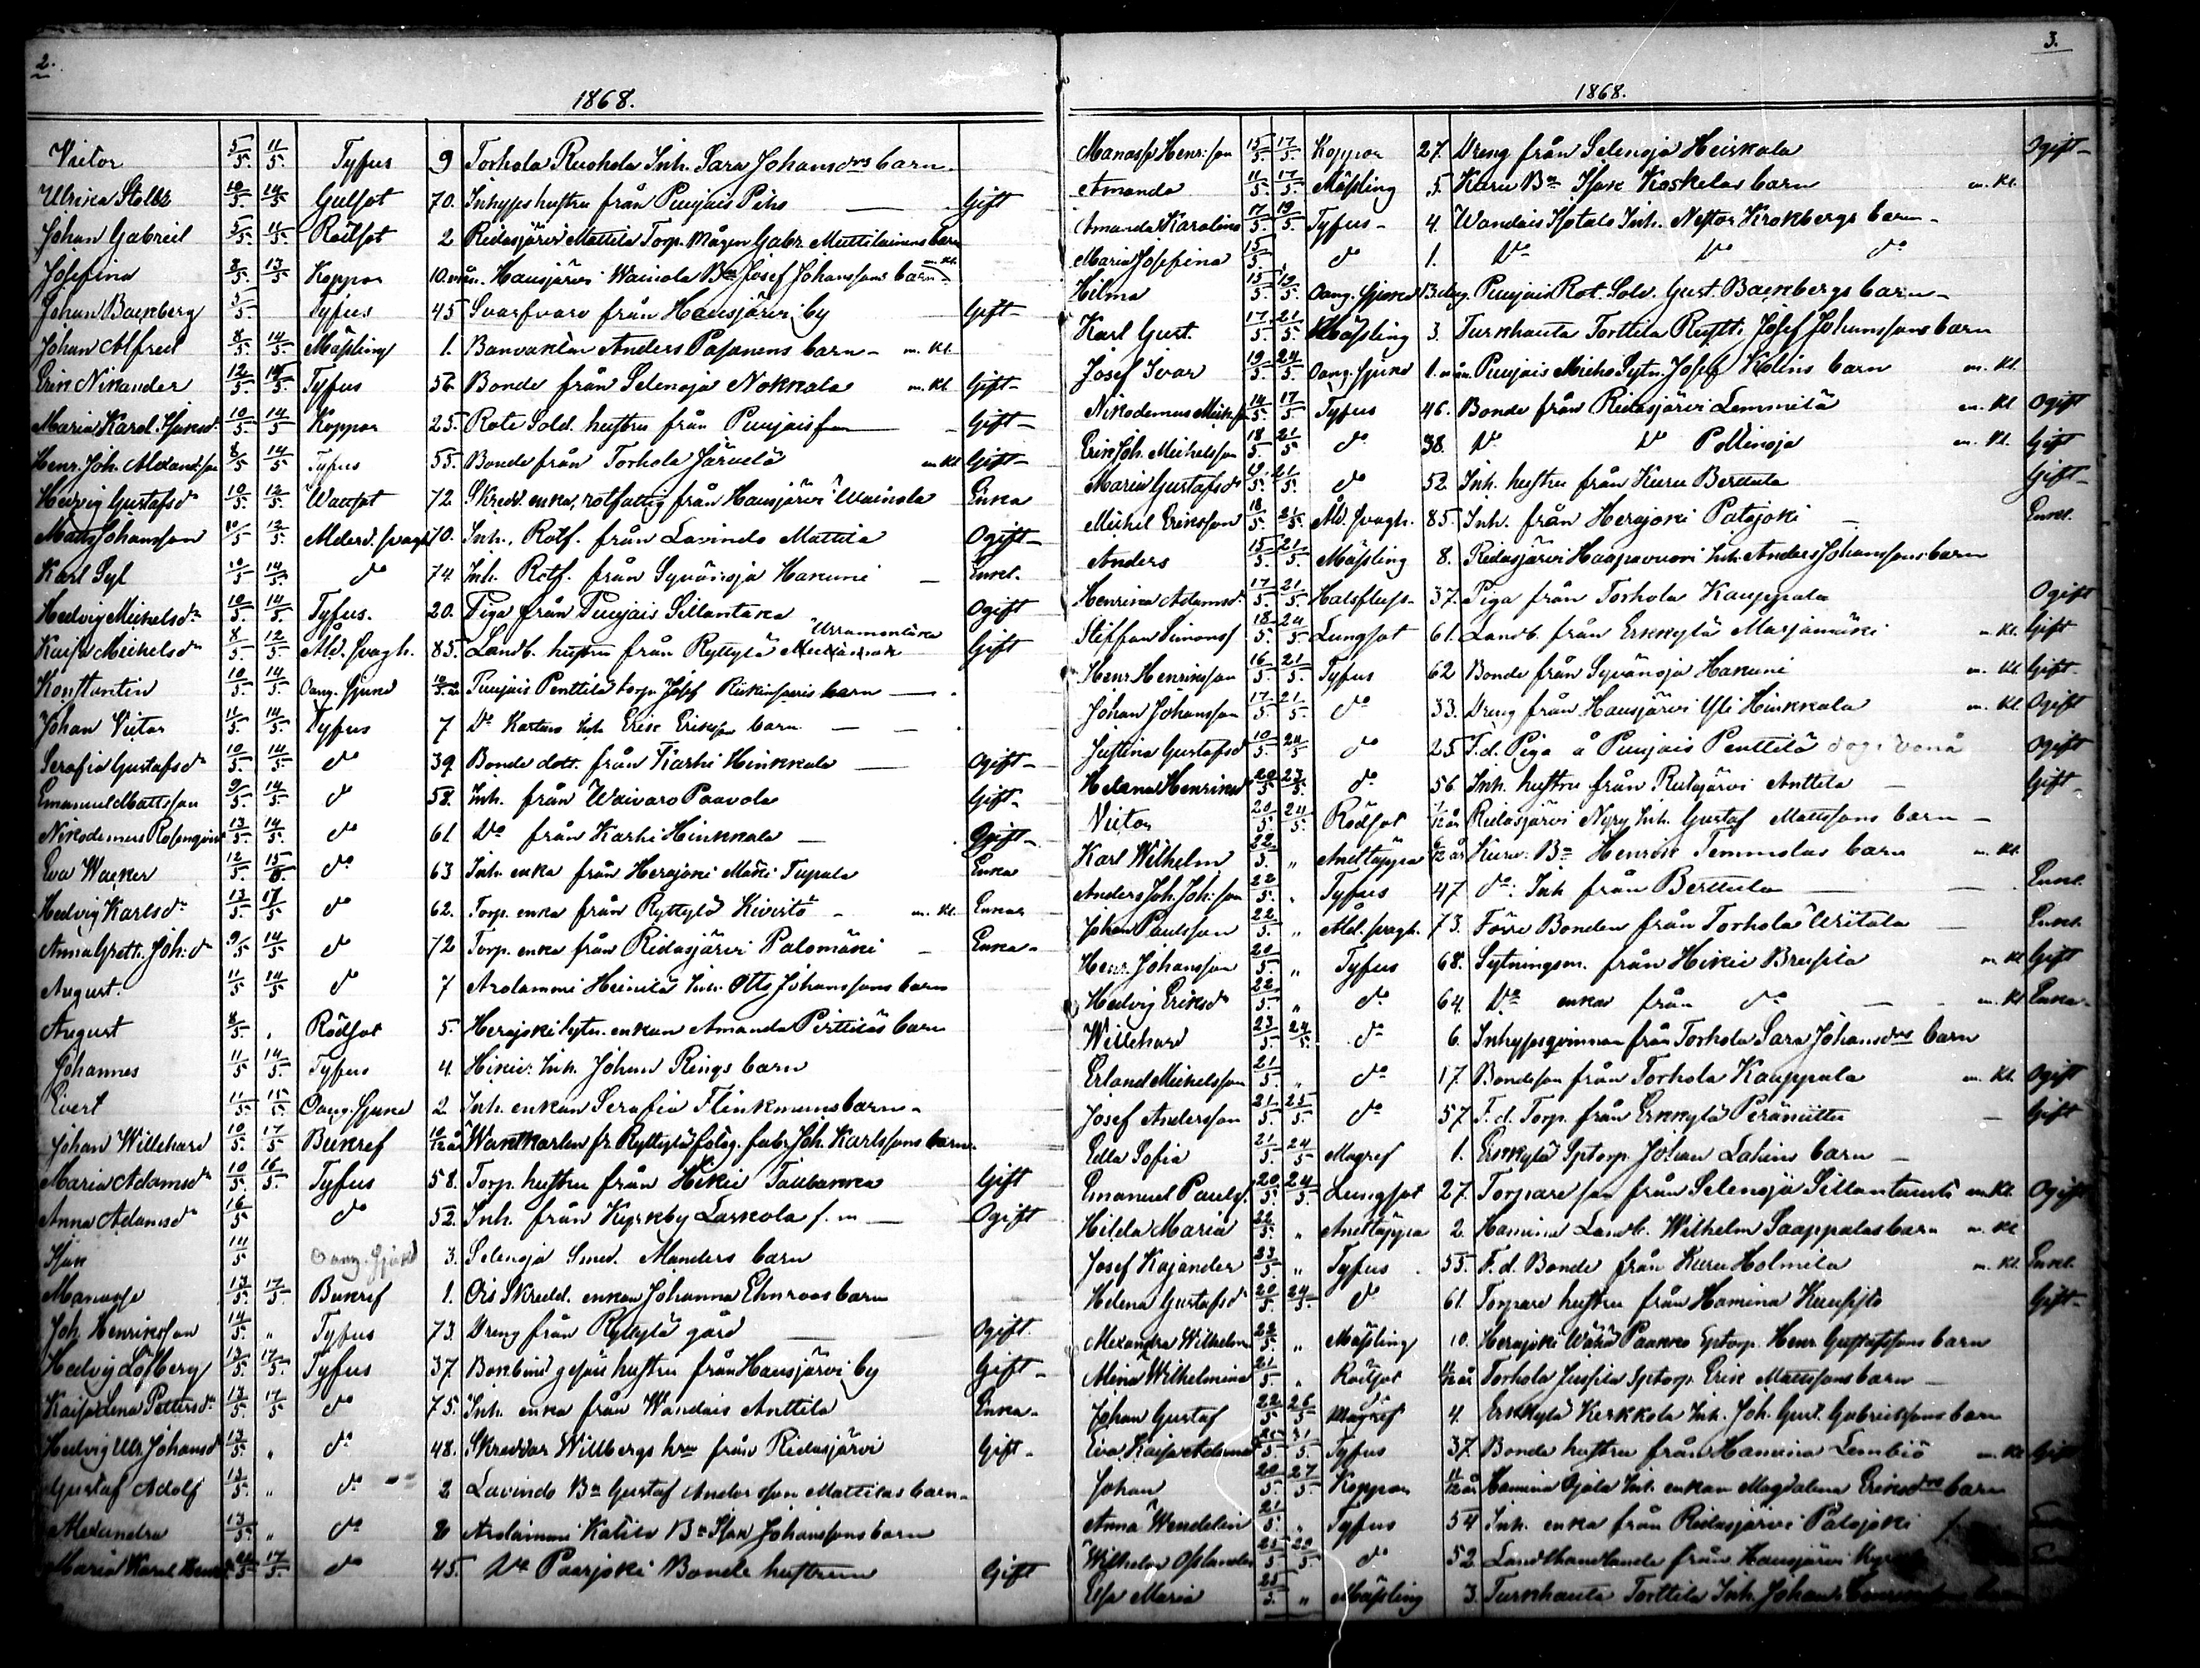 2.
1868.
Victor 5/5 11/5 Tyfus 9 Torhola Ruohola Inh. Sara Johansdrs barn
Ulrica Stolbz 10/5 14/5 Gulsot 70. Inhyses hustru från Puujais Pihs Gift
Johan Gabriel 5/5 11/5 Rödsot 2 Ridasjärvi Mattila Torp. Mågen Gabr. Mattilainens barn
Josefina 8/5 13/5 Koppor 10 mån. Hausjärvi Wainola Bn Josef Johanssons barn m. Kl.
Johan Backberg 5/5 Tyfus 45 Svarfvare från Hausjärvi by Gift
Johan Alfred 8/5 14/5 Mässling 1. Banvakten Anders Pasanens barn m. Kl.
Erik Nikander 12/5 14/5 Tyfus 56 Bonde från Selensjä Nokkala m. Kl. Gift
Maria Karol. Isaksdr 10/5 14/5 Koppor 25. Rote Sold. hustru från Puujais Gift
Henr. Joh. Alexandsson 8/5 14/5 Tyfus 55. Bonde från Torhola Järvelä m. Kl. Gift
Hedvig Gustafsdr 10/5 12/5 Wattsot 72 Skredd. enka, rotfattig från Hausjärvi Wainola Enka
Matts Johansson 10/5 12/5 Alderd. svagh. 70. Inh. Rotf. från Lavinds Mattila Ogift
Karl Syl 10/5 14/5 do 74 Inh. Rotf. från Syvänsjä Hakuni Enkl.
Hedvig Michelsdr 10/5 14/5 Tyfus. 20. Piga från Puujais Sillantaka Ogift
Kaisa Michelsdr 8/5 12/5 Åld. svagh. 85. Landb. hustru från Ryttylä Urramontaka Gift
Konstantin 10/5 14/5 Oang. Sjukd 10/5 Puujais Penttilä torp. Josef barn
Johan Victor 11/5 14/5 Tyfus 7 Do Kartano Inh. Eric Eriksson barn
Serafia Gustafsdr 10/5 14/5 do 39 Bonde dott. från Karhi Hinkkala Ogift
Emanuel Mattsson 9/5 14/5 do 58. Inh. från Waivaro Paavola Gift
Nikodemus Rosenqvist 13/5 14/5 do 61 Do från Karhi Hinkkala Ogift
Eva Wacker 12/5 15/5 do 63 Inh. enka från Herajoki Mäki Tupala Enka
Hedvig Karlsdr 13/5 17/5 do 62. Torp. enka från Ryttylä Kivistö m. Kl. Enka
Anna Greth. Joh:dr 9/5 14/5 do 72 Torp. enka från Ridasjärvi Palomäki Enka
August. 11/5 14/5 do 7 Arolammi Heinilä Inh. Otto Johanssons barn
August 8/5 „ Rödsot 5. Herajoki Sytn. enkan Amanda Perttiläs barn
Johannes 11/5 14/5 Tyfus 4. Hikie: Inh. Johan Rings barn
Evert 11/5 15/5 Oang. Sjukd 2 Inh. enkan Serafia Flinkmans barn
Johan Willehard 10/5 17/5 Bukref 10/12 år Wantkarlen fr. Ryttylä Joh. Karlssons barn
Maria Adamsdr 10/5 16/5 Tyfus 58. Torp. hustru från Hikie Gift
Anna Adamsdr 16/5 do 52. Inh. från Kyrkby Laskola Ogift
Isak 14/5 Oang. Sjukd 3. Selensjä Smed. Manders barn
Manasse 13/5 17/5 Bukref 1. Ois Skredd. enkan Johanna Ehnroos barn
Joh. Henriksson 14/5 „ Tyfus 73. Dreng från Ryttylä gård Ogift.
Hedvig Löfberg 13/5 17/5 Tyfus 37. Bokbind. gesäll hustru från Hausjärvi by Gift
Kaisa Lena Pettersdr 13/5 17/5 do 75. Inh. enka från Wandais Anttila Enka
Hedvig Ulr. Johansdr 13/5 „ do 48. Skreddar Willbergs hru från Ridasjärvi Gift
Gustaf Adolf 13/5 „ do 2 Lavinds Bn Gustaf Andersson Mattilas barn
Alexandra 13/5 „ do 2 Arolammi Katila Bn Isak Johanssons barn
Maria Karol. 17/5 do 45. Do Paarjoki Bonde hustrun Gift
3.
1868.
Manasse Henr:son 15/5 17/5 Koppor 27. Dreng från Selensjä Heikkala Ogift
Amanda 11/5 17/5 Mässling 5. Karu Bn Isak Koskelas barn m. Kl.
Amanda Karolina 17/5 19/5 Tyfus 4. Wandais Isotalo Inh. Nestor Krokbergs barn
Maria Josefina 15/5 „ do 1. Do Do do
Hilma 15/5 19/5 Oang. Sjukd 13 dag. Puujais Rot. Sold. Gust. Backbergs barn
Karl Gust. 17/5 21/5 Mässling 3. Turkhauta Torttila Rustt. Josef Johanssons barn
Josef Ivar 19/5 24/5 Oang. Sjukd 1. mån. Puujais Sytn. Josef Kolins barn m. Kl.
Nikodemus Michelss. 14/5 17/5 Tyfus 46. Bonde från Ridasjärvi Lemmilä m. Kl. Ogift
Erik Joh. Michelsson 18/5 21/5 do 38. Do Do Pollinoja m. Kl. Gift
Maria Gustafsdr 19/5 21/5 do 52. Inh. hustru från Kuru Berttula Gift
Michel Eriksson 18/5 21/5 Åld. svagh. 85. Inh. från Herajoki Patojoki Enkl.
Anders 15/5 21/5 Mässling 8. Ridasjärvi Haapavuori Inh. Anders Johanssons barn
Henrika Adamsdr 17/5 21/5 Halsfluss 37. Piga från Torhola Kauppala Ogift
Steffan Simonss. 18/5 24/5 Lungsot 61. Landb. från Erkkylä Marjamäki m. Kl. Gift
Henr. Henriksson 16/5 21/5 Tyfus 62 Bonde från Syvänsjä Hakuni m. Kl. Gift
Johan Johansson 17/5 21/5 do 33. Dreng från Hausjärvi Yli Hinkkala m. Kl. Ogift
Justina Gustafsdr 10/5 24/5 do 25. F.d. Piga å Puujais Penttilä Ogift
Helena Henriksdr 20/5 23/5 do 56. Inh. hustru från Ridasjärvi Anttila Gift
Victor 20/5 24/5 Rödsot 1/12 år Ridasjärvi Nyry Inh. Gustaf Mattssons barn
Karl Wilhelm 22/5 „ Andtäppa 6/12 år Kuru: Bn Henrik Temmolas barn m. Kl.
Anders Joh. Joh:son 22/5 „ Tyfus 47 do: Inh. från Berttula Enkl.
Johan Paulsson 22/5 „ Åld. svagh. 73. Förre Bonden från Torhola Writala Enkl.
Henr. Johansson 20/5 „ Tyfus 68. Sytningsm. från Hikie Brusila m. Kl. Gift
Hedvig Eriksdr 22/5 „ do 64. Do enka från do m. Kl. Enka
Willehard 23/5 24/5 do 6. Inhysesqvinnan från Torhola Sara Johansdrs barn
Erland Michelsson 21/5 „ do 17. Bondeson från Torhola Kauppala m. Kl. Ogift
Josef Andersson 21/5 25/5 do 57. F. d. Torp. från Erkkylä Gift
Edla Sofia 21/5 24/5 Magref 1. Erkkylä Sptorp. Johan Lahins barn
Emanuel Paulss. 20/5 24/5 Lungsot 27. Torpare son från Selensjä m. Kl. Ogift
Hilda Maria 22/5 „ Andtäppa 2. Hamina Landb. Wilhelm Saappalas barn m. Kl.
Josef Kajander 23/5 „ Tyfus 55. F. d. Bonde från Kuru Holmila m. Kl. Enkl.
Helena Gustafsdr 20/5 24/5 do 61. Torpare hustru från Hamina Gift
Alexandra Wilhelm. 22/5 „ Mässling 10. Herajoki Paakko Sptorp. Henr. Gustafssons barn
Mina Wilhelmina 21/5 „ Rödsot 11/12 år Torhola Jussila Sptorp. Erik Mattssons barn
Johan Gustaf 22/5 26/5 Magref 4. Erkkylä Kerkkola Inh. Joh. Gust. Gabrielssons barn
Eva Kaisa Adamsdr 25/5 31/5 Tyfus 37. Bonde hustru från Hamina Lembiö m. Kl. Gift
Johan 20/5 27/5 Koppor 11/12 år Hamina Ojala Inh. enkan Magdalena Eriksdrs barn
Anna Wendelin 21/5 „ Tyfus 54 Inh. enka från Ridasjärvi Patojoki
Wilhelm Oslander 21/5 29/5 do 52. Landthandlande från Hausjärvi
Elsa Maria 25/5 „ Mässling 3. Turkhauta Torttila Inh. Johan